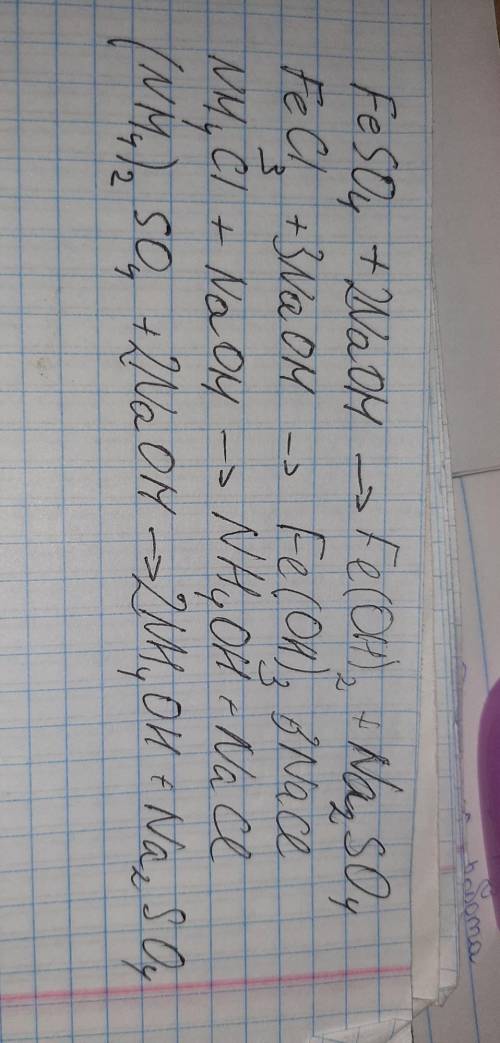 FeSO₄ + 2NaOH → Fe(OH)₂ + Na₂SO₄
FeCl₃ + 3NaOH → Fe(OH)₃ + 3NaCl
NH₄Cl + NaOH → NH₄OH + NaCl
(NH₄)₂SO₄ + 2NaOH → 2NH₄OH + Na₂SO₄
работа